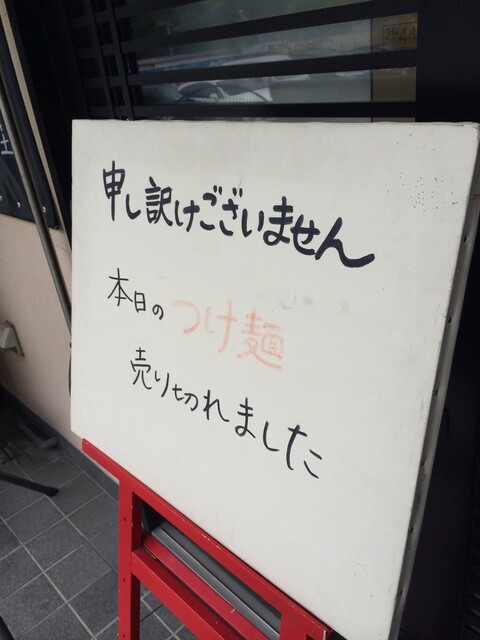 申し訳けございません
本日のつけ麺
売り切れました